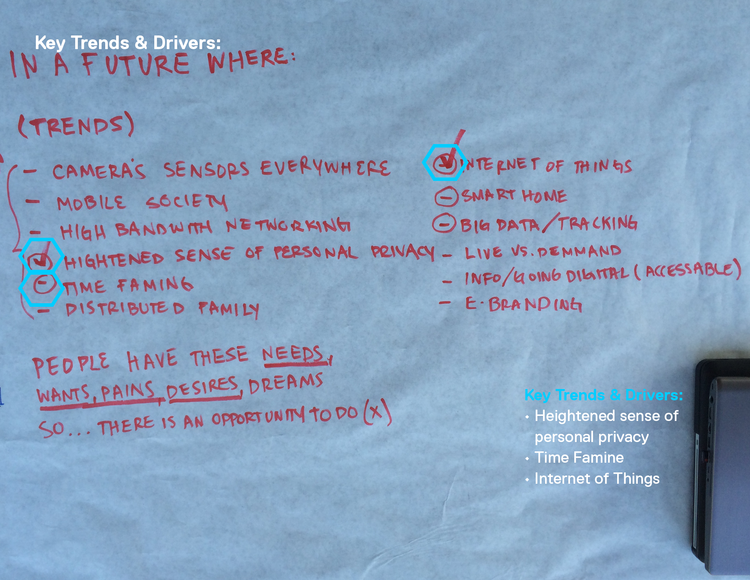 Key Trends & Drivers:
IN A FUTURE WHERE:
(TRENDS)
- CAMERA'S SENSORS EVERYWHERE
- MOBILE SOCIETY
- HIGH BANDWITH NETWORKING
HIGHTENED SENSE OF PERSONAL PRIVACY
- TIME FAMING
- DISTRIBUTED FAMILY
- INTERNET OF THINGS
- SMART HOME
- BIG DATA/TRACKING
- LIVE VS. DEMMAND
- INFO/GOING DIGITAL (ACCESSABLE)
- E-BRANDING
PEOPLE HAVE THESE NEEDS,
WANTS, PAINS, DESIRES, DREAMS
SO... THERE IS AN OPPORTUNITY TO DO (X)
Key Trends & Drivers:
• Heightened sense of
personal privacy
• Time Famine
• Internet of Things